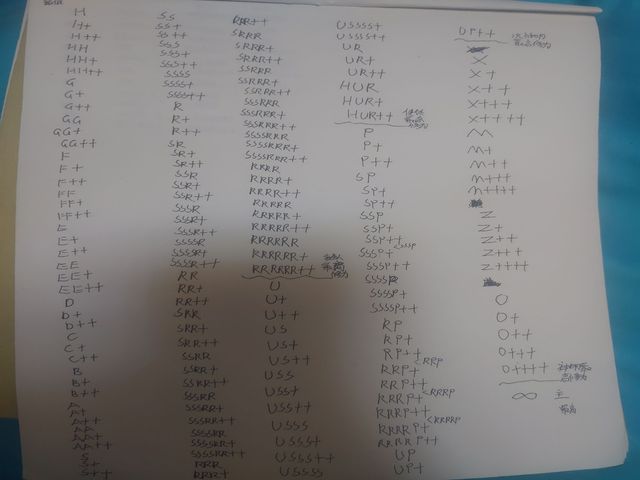 H
H+
H++
HH
HH+
HH++
G
G+
G++
GG
GG+
GG++
F
F+
F++
FF
FF+
FF++
E
E+
E++
EE
EE+
EE++
D
D+
D++
C
C+
C++
B
B+
B++
A
A+
A++
AA
AA+
AA++
S
S+
S++
SS
SS+
SS++
SSS
SSS+
SSS++
SSSS
SSSS+
SSSS++
R
R+
R++
SR
SR+
SR++
SSR
SSR+
SSR++
SSSR
SSSR+
SSSR++
SSSSR
SSSSR+
SSSSR++
RR
RR+
RR++
SRR
SRR+
SRR++
SSRR
SSRR+
SSRR++
SSSRR
SSSRR+
SSSRR++
SSSSRR
SSSSRR+
SSSSRR++
RRR
RRR+
RRR++
SRRR
SRRR+
SRRR++
SSRRR
SSRRR+
SSRRR++
SSSRRR
SSSRRR+
SSSRRR++
SSSSRRR
SSSSRRR+
SSSSRRR++
RRRR
RRRR+
RRRR++
RRRRR
RRRRR+
RRRRR++
RRRRRR
RRRRRR+
RRRRRR++
最高
U
U+
U++
US
US+
US++
USS
USS+
USS++
USSS
USSS+
USSS++
USSSS
USSSS+
USSSS++
UR
UR+
UR++
HUR
HUR+
HUR++
最高
P
P+
P++
SP
SP+
SP++
SSP
SSP+
SSP++
<SSSP
SSSP+
SSSP++
SSSSP
SSSSP+
SSSSP++
RP
RP+
RP++
<RRP
RRP+
RRP++
<RRRP
RRRP+
RRRP++
<RRRRP
RRRRP+
RRRRP++
UP
UP+
UP++
X
X+
X++
X+++
X++++
M
M+
M++
M+++
M++++
Z
Z+
Z++
Z+++
Z++++
O
O+
O++
O+++
O++++
∞ 主
最高